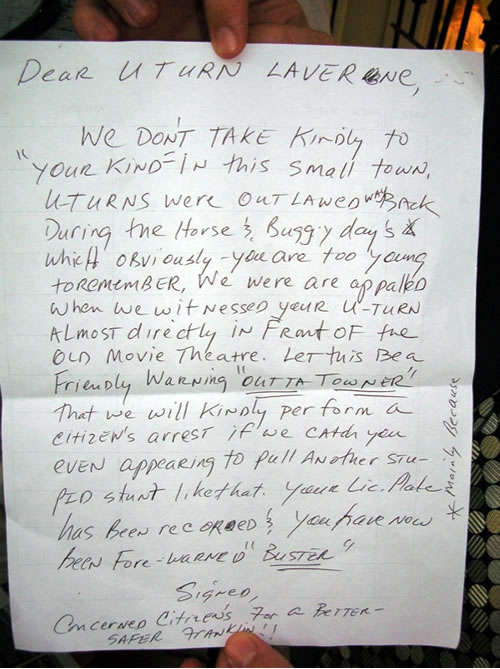 Dear U TURN LAVERNE,
We DON'T TAKE Kindly to
"YOUR KIND" IN this small town.
U-TURNS were OUTLAWED WAY BACK
During the Horse & Buggy day's *
which OBVIOUSLY - you are too young
to REMEMBER, We were are appalled
when we witNessed your U-TURN
ALmost directly in Front OF the
OLD Movie Theatre. Let this Be a
Friendly Warning "OUTTA TOWNER"
That we will Kindly perform a
citizen's arrest if we catch you
EVEN appearing to pull Another stu-
PID stunt like that. your Lic. Plate
has Been recorded & You have now
been Fore-warned "BUSTER"
* Mainly Because
Signed,
Concerned Citizen's For a Better-
SAFER FRANKLIN!!